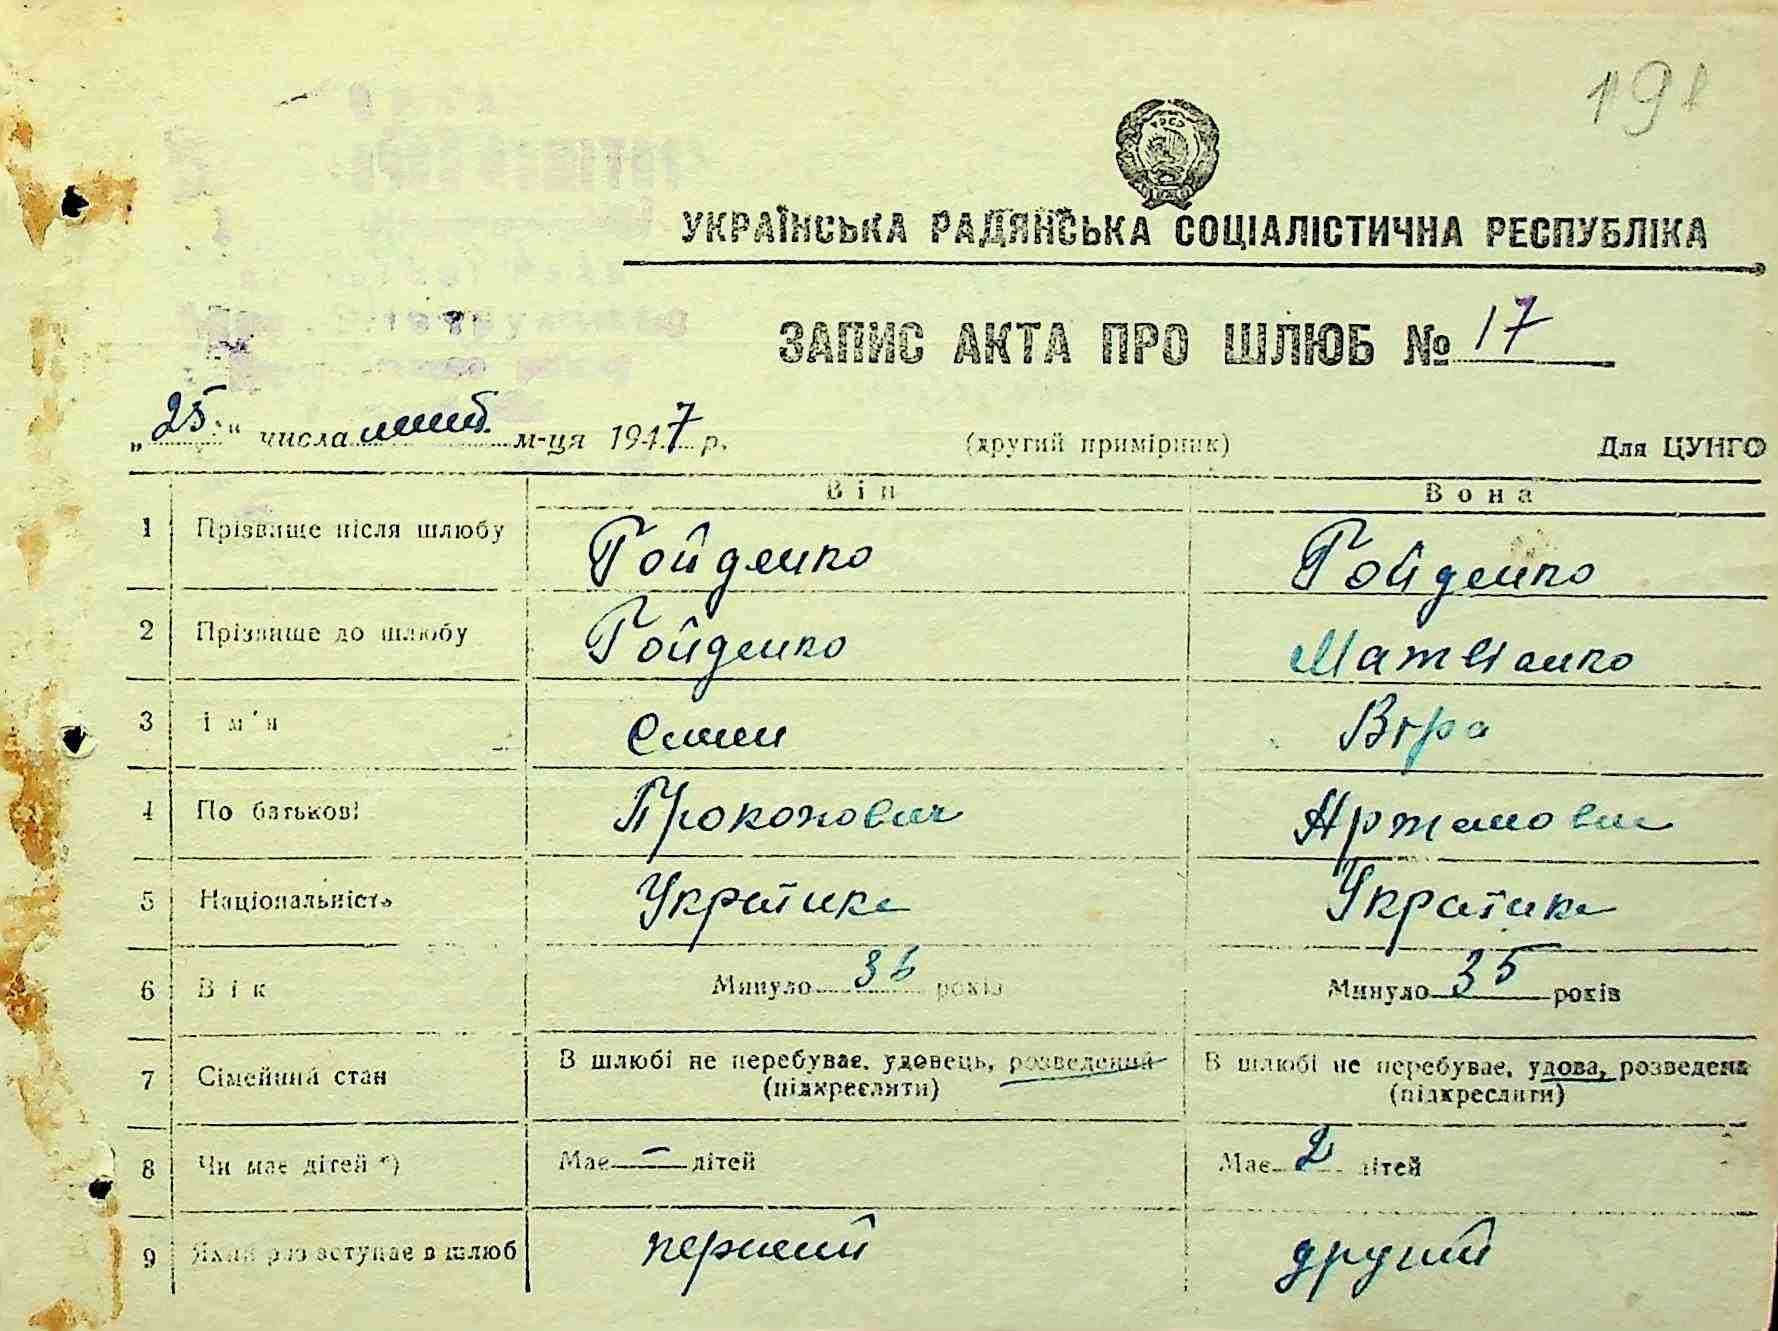 191
УКРАЇНСЬКА РАДЯНСЬКА СОЦІАЛІСТИЧНА РЕСПУБЛІКА
ЗАПИС АКТА ПРО ШЛЮБ № 17
„25“ числа м-ця 1947 р. (другий примірник) Для ЦУНГО
Він Вона
1 Прізвище після шлюбу Гойденко Гойденко
2 Прізвище до шлюбу Гойденко Матвіенко
3 Ім'я Семен Віра
4 По батькові Прокопович Артемовна
5 Національність Україн Україн
6 Вік Минуло 36 років Минуло 35 років
7 Сімейний стан В шлюбі не перебуває, удовець, розведений В шлюбі не перебуває, удова, розведена
(підкреслити) (підкреслити)
8 Чи має дітей *) Має — дітей Має 2 дітей
9 Який раз вступає в шлюб перший другий